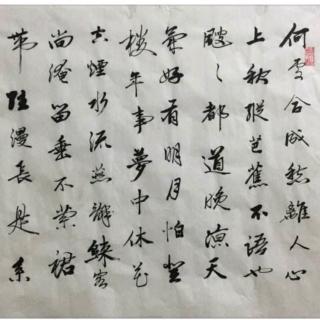 何處合成愁離人心
上秋縱芭蕉不語也
颼々都道晚涼天
氣好有明月怕登
樓年事夢中休花
空煙水流燕辭歸客
尚淹留垂不縈裙
帶住漫長是系